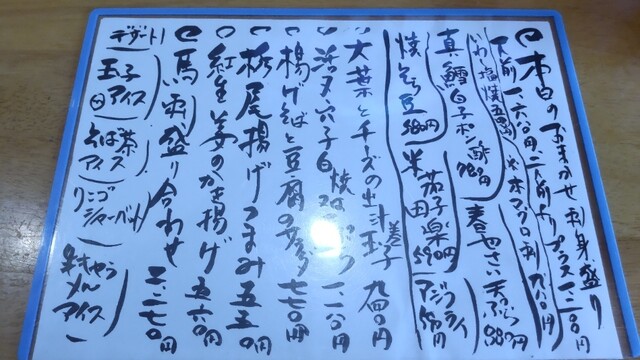 本日のおまかせ刺身盛り
一人前 一六八〇円 二人前よりプラス一二一〇円
いわし塩焼 五百円
本マグロ刺 九八〇円
真鱈白子ポン酢 780円
春やさい天ぷら 880円
焼そら豆 580円
米茄子田楽 590円
アジフライ
大葉とチーズの出汁玉子巻 九四〇円
揚げそばと豆腐のサラダ 七七〇円
栃尾揚げつまみ 五五〇円
紅生姜のかき揚げ 五六〇円
馬刺盛り合わせ 二二七〇円
デザート
玉子アイス
そば茶アイス
リンゴシャーベット
生きゃらめるアイス